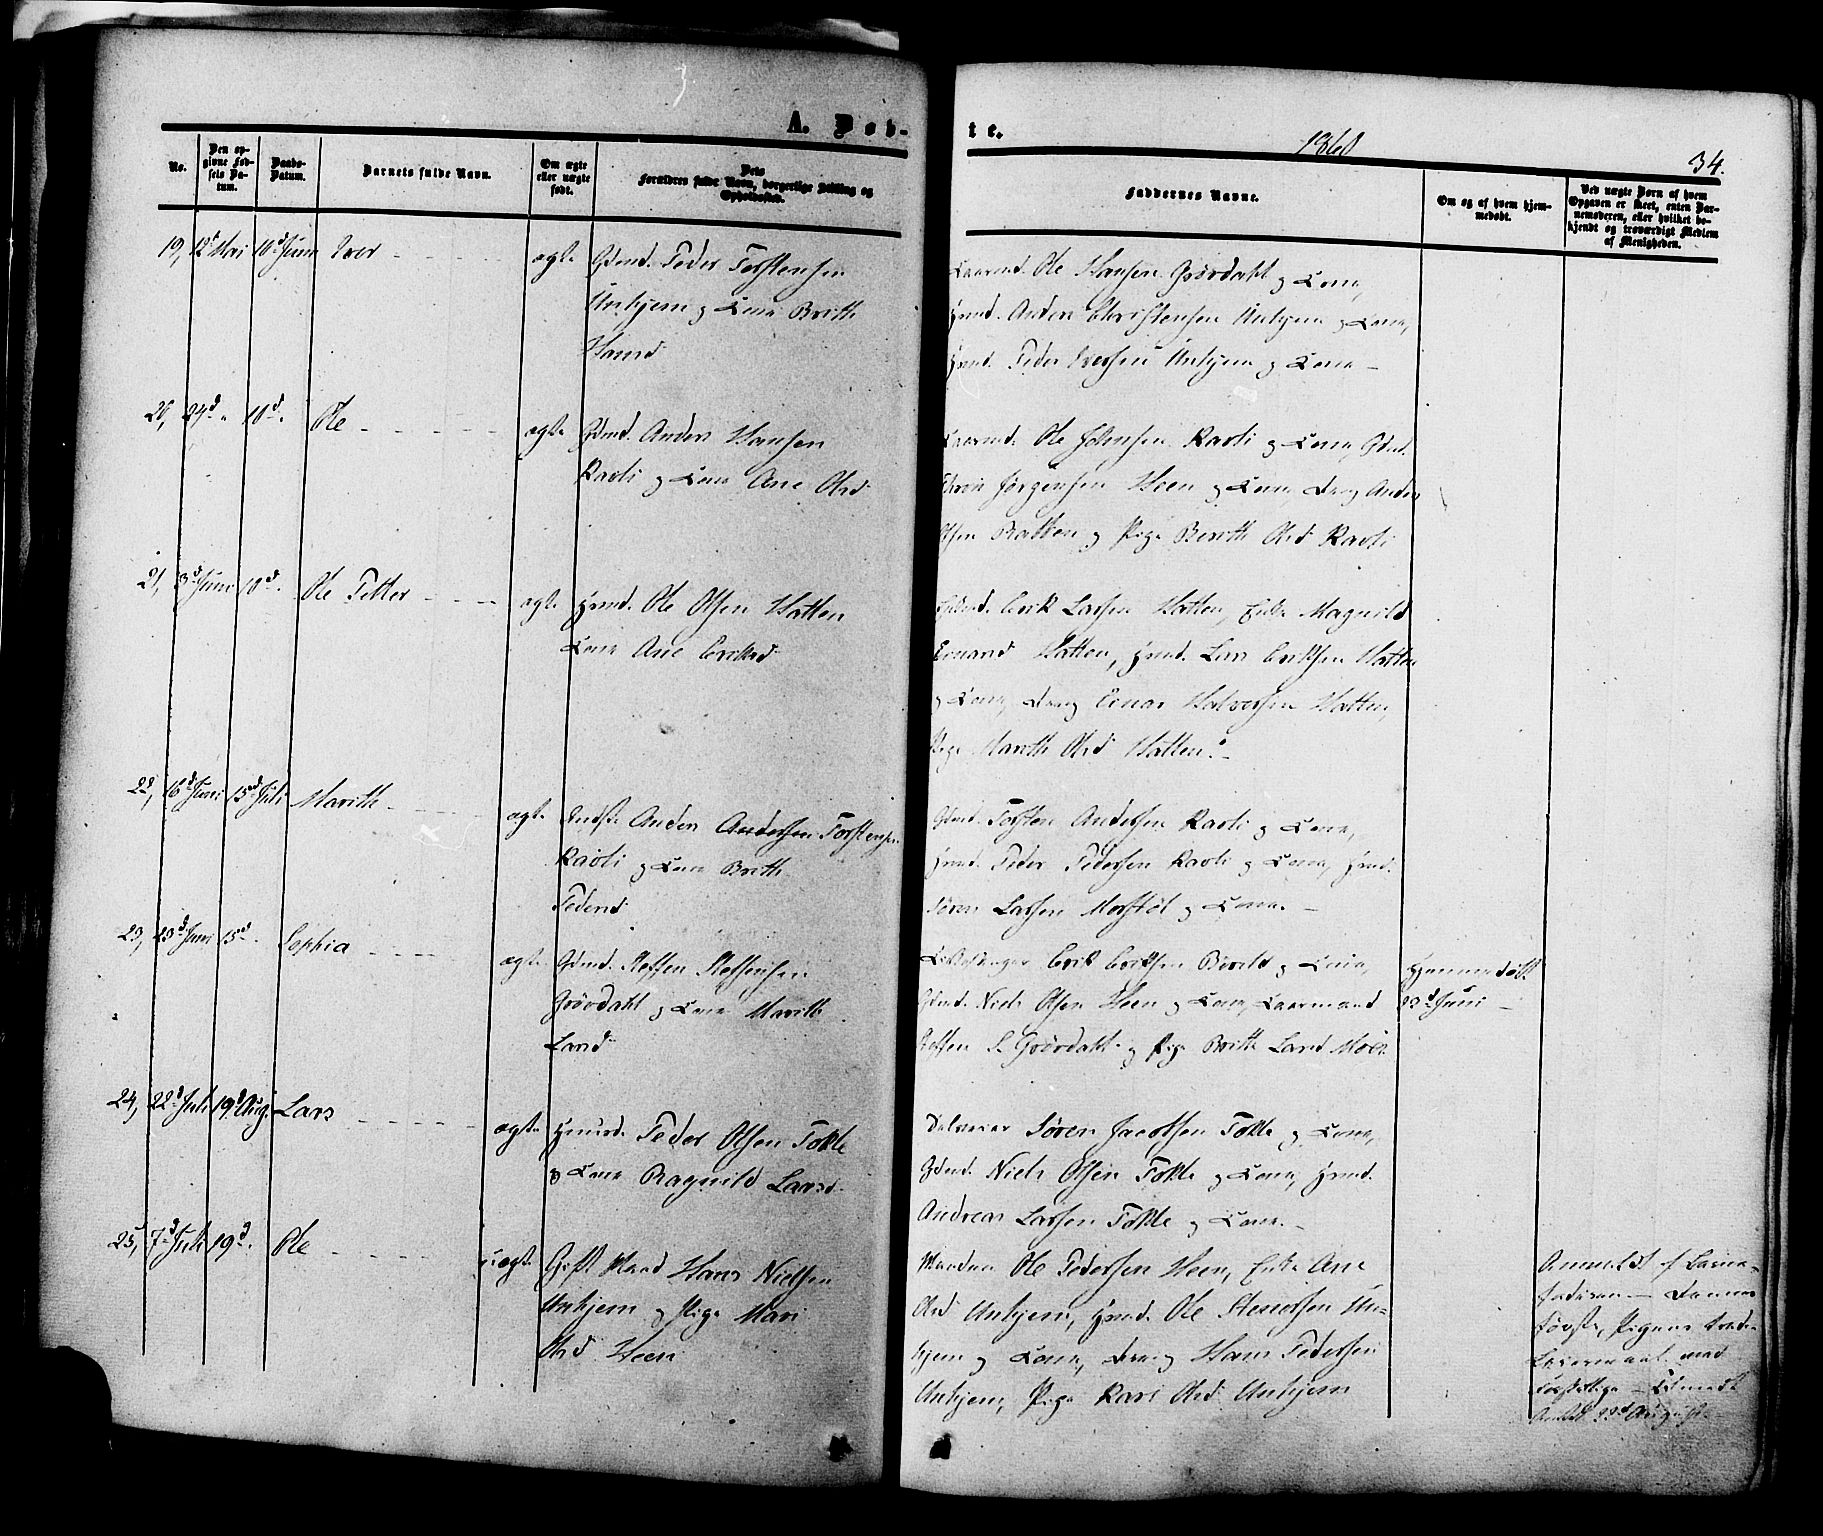 A. Døb-
te.
1860
34.
No.
Den op-
givne Fød-
sels Da-
tum.
Daabs-
Datum.
Barnets fulde Navn.
Om ægte
eller uægte
født.
Dets
Forældres fulde Navn, borgerlige Stilling og
Opholdssted.
Faddernes Navne.
Om og af hvem hjem-
medøbt.
Ved uægte Børn af hvem
Opgaven er skeet, enten Bar-
nemoderen, eller hvilket be-
kjendt og troværdigt Medlem
af Menigheden.
19, 12d Mai 10d Juni Iver ægte Gbmd. Peder Torstensen
Unhjem og Kona Britth
Hansd
Ole Hansen Grövdahl og Kona,
Hmd. Anders Christensen Unhjem og Kona,
Hmd. Peder Iversen Unhjem og Kona
20, 24d " 10d Ole ægte Gbmd. Anders Hansen
Ravli og Kona Ane Olsd
Ole Johnsen Ravli og Kona, Gbmd.
Jörgensen Heen og Kona, Dreng Anders
Olsen Bratten og Pige Berith Olsd Ravli
21, 3d Juni 10d Ole Petter ægte Hmd. Ole Olsen Hatten
Kona Ane Eriksd
Gbmd. Erik Larsen Hatten, Enke Magnild
Hatten, Hmd. Lars Eriksen Hatten
og Kona, Dreng Einar Halvorsen Hatten,
Pige Marith Olsd Hatten.
22, 16d Juni 15d Juli Marith ægte Indst. Anders Andersen Torstensen
Ravli og Kona Brith
Pedersd
Gbmd. Torsten Andersen Ravli og Kona,
Hmd. Peder Pedersen Ravli og Kona, Hmd.
Sören Larsen Morstöl og Kona.
23, 23d Juni 15d Sophia ægte Gbmd. Steffen Steffensen
Grövdahl og Kona Marith
Larsd
Kirkesanger Erik Eriksen Bivild og Kona,
Gbmd. Niels Olsen Heen og Kona, Kaarmand
Steffen S. Grövdahl og Pige Britth Larsd Moen
Hjemmedöbt
23d Juni
24, 22d Juli 19d Aug. Lars ægte Hmd. Peder Olsen Tokle
og Kona Ragnild Larsd.
Sören Jacobsen Tokle og Kona,
Gbmd. Niels Olsen Tokle og Kona, Hmd.
Andreas Larsen Tokle og Kona.
25, 7d Juli 19d Ole uægte Gift Mand Hans Nielsen
Unhjem og Pige Mari
Olsd Heen
Manden Ole Pedersen Heen, Enke Ane
Olsd Unhjem, Hmd. Ole Stenersen Un-
hjem og Kona, Dreng Hans Pedersen
Unhjem, Pige Kari Olsd Unhjem
Anmeldt af Barne-
faderen
förste, Pigens
Leiermaal med
22d August